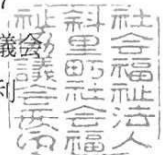 議会
利
社会福祉法人
斜里町社会福
祉協議会長